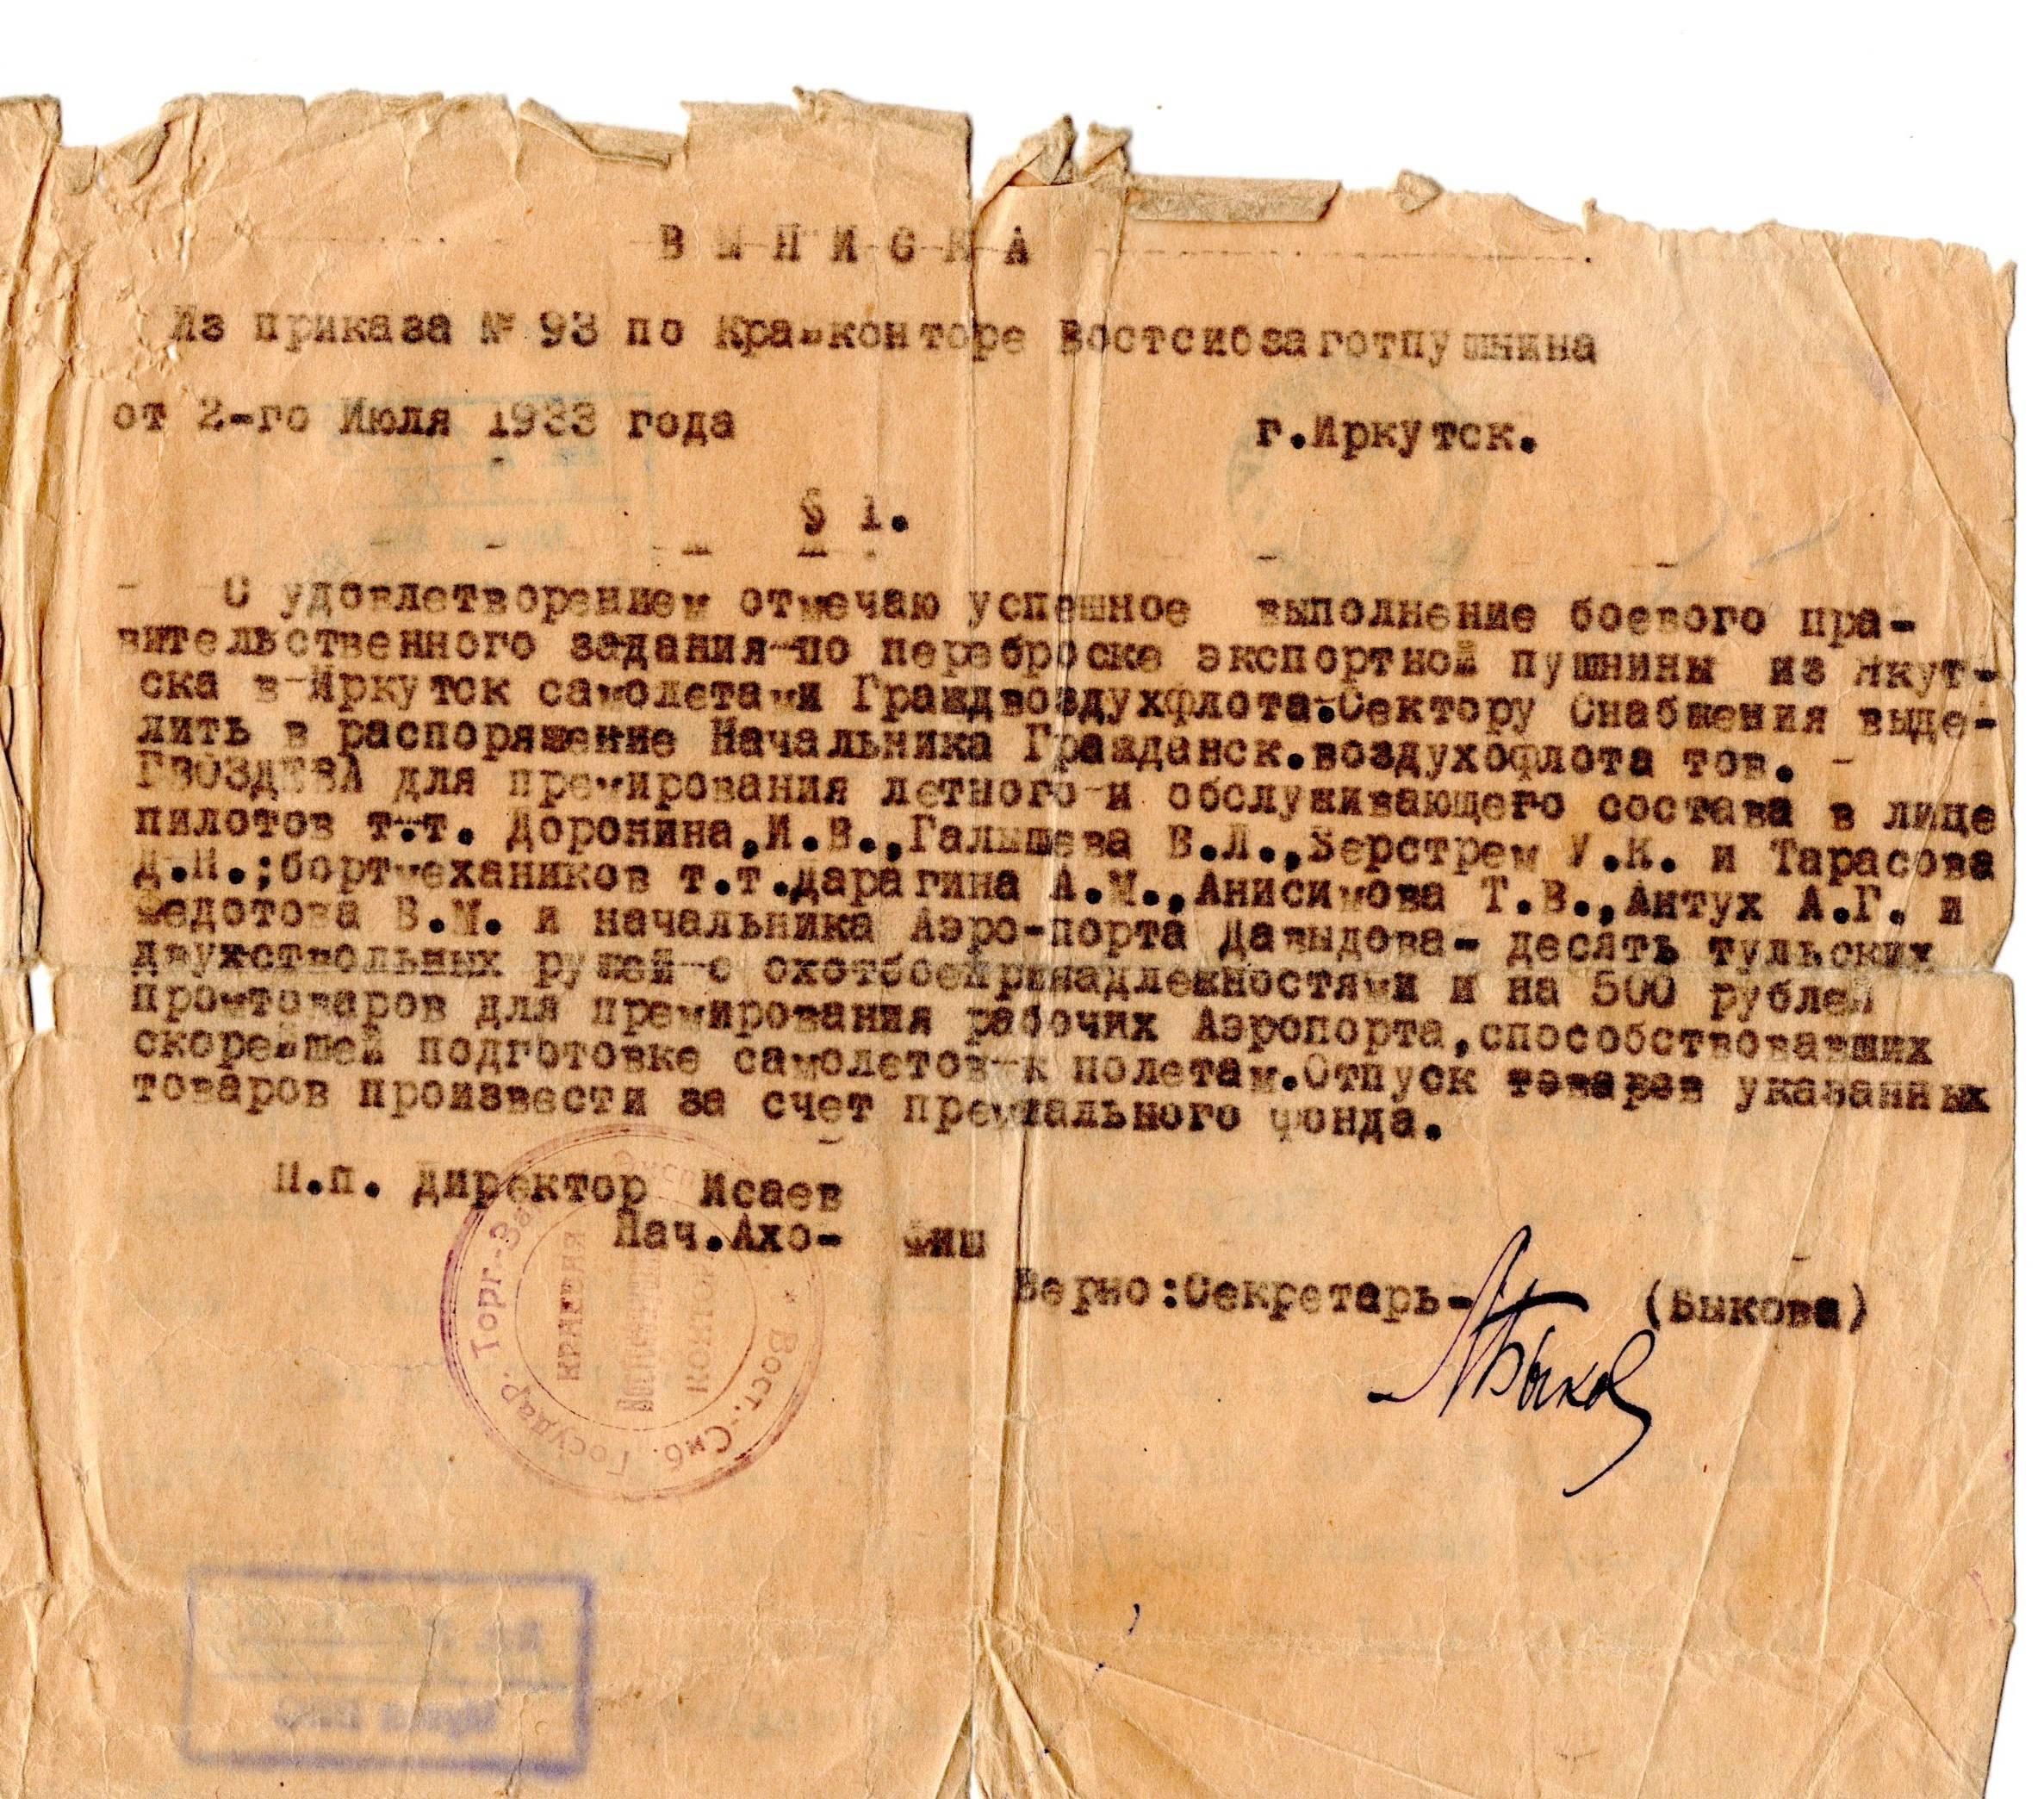 В Ы П И С К А
Из приказа № 93 по Крайконторе Востсибзаготпушнина
от 2-го Июля 1933 года г.Иркутск.
§ 1.
С удовлетворением отмечаю успешное выполнение боевого пра-
вительственного задания по переброске экспортной пушнины из Якут-
ска в Иркутск самолетами Граждвоздухфлота.Сектору Снабжения выде-
лить в распоряжение Начальника Гражданск.воздухофлота тов. -
ГВОЗДЕВА для премирования летного и обслуживающего состава в лице
пилотов т.т. Доронина,И.В.,Галышева В.Л.,Берстрем У.К. и Тарасова
Д.Н.;бортмехаников т.т.Дарагина А.М.,Анисимова Т.В.,Антух А.Г. и
Федотова В.М. и начальника Аэро-порта Давыдова- десять тульских
двухствольных ружей с охотбоепринадлежностями и на 500 рублей
промтоваров для премирования рабочих Аэропорта,способствовавших
скорейшей подготовке самолетов к полетам.Отпуск товаров указанных
товаров произвести за счет премиального фонда.
П.п. Директор Исаев
Нач.Ахо- Фиш
Верно:Секретарь- (Быкова)
Быков
Вост.-Сиб. Государ. Торг.-За
КРАЕВАЯ
Музей